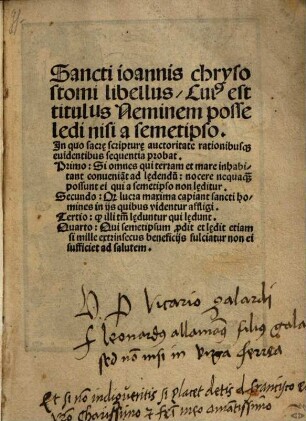 Sancti ioannis chryso
stomi libellus / Cuiꝰ est
titulus Neminem posse
ledi nisi a semetipso.
In quo sacrę scripturę auctoritate rationibusqꝫ
euidentibus sequentia probat.
Primo: Si omnes qui terram et mare inhabi
tant conueniāt ad lędendū: nocere nequaqͣꝫ
possunt ei qui a semetipso non lęditur.
Secundo: Qꝫ lucra maxima capiant sancti ho
mines in ijs quibus videntur affligi.
Tertio: ꝙ illi tm̄ lęduntur qui lędunt.
Quarto: Qui semetipsum ꝓdit et lędit etiam
si mille extrinsecus beneficijs fulciatur non ei
sufficiet ad salutem.
P vicario galardi
f leonardus filius
sed non nisi in virga ferrea
Et si non indigueritis si placet detis d francisco
charissimo et meo amatissimo